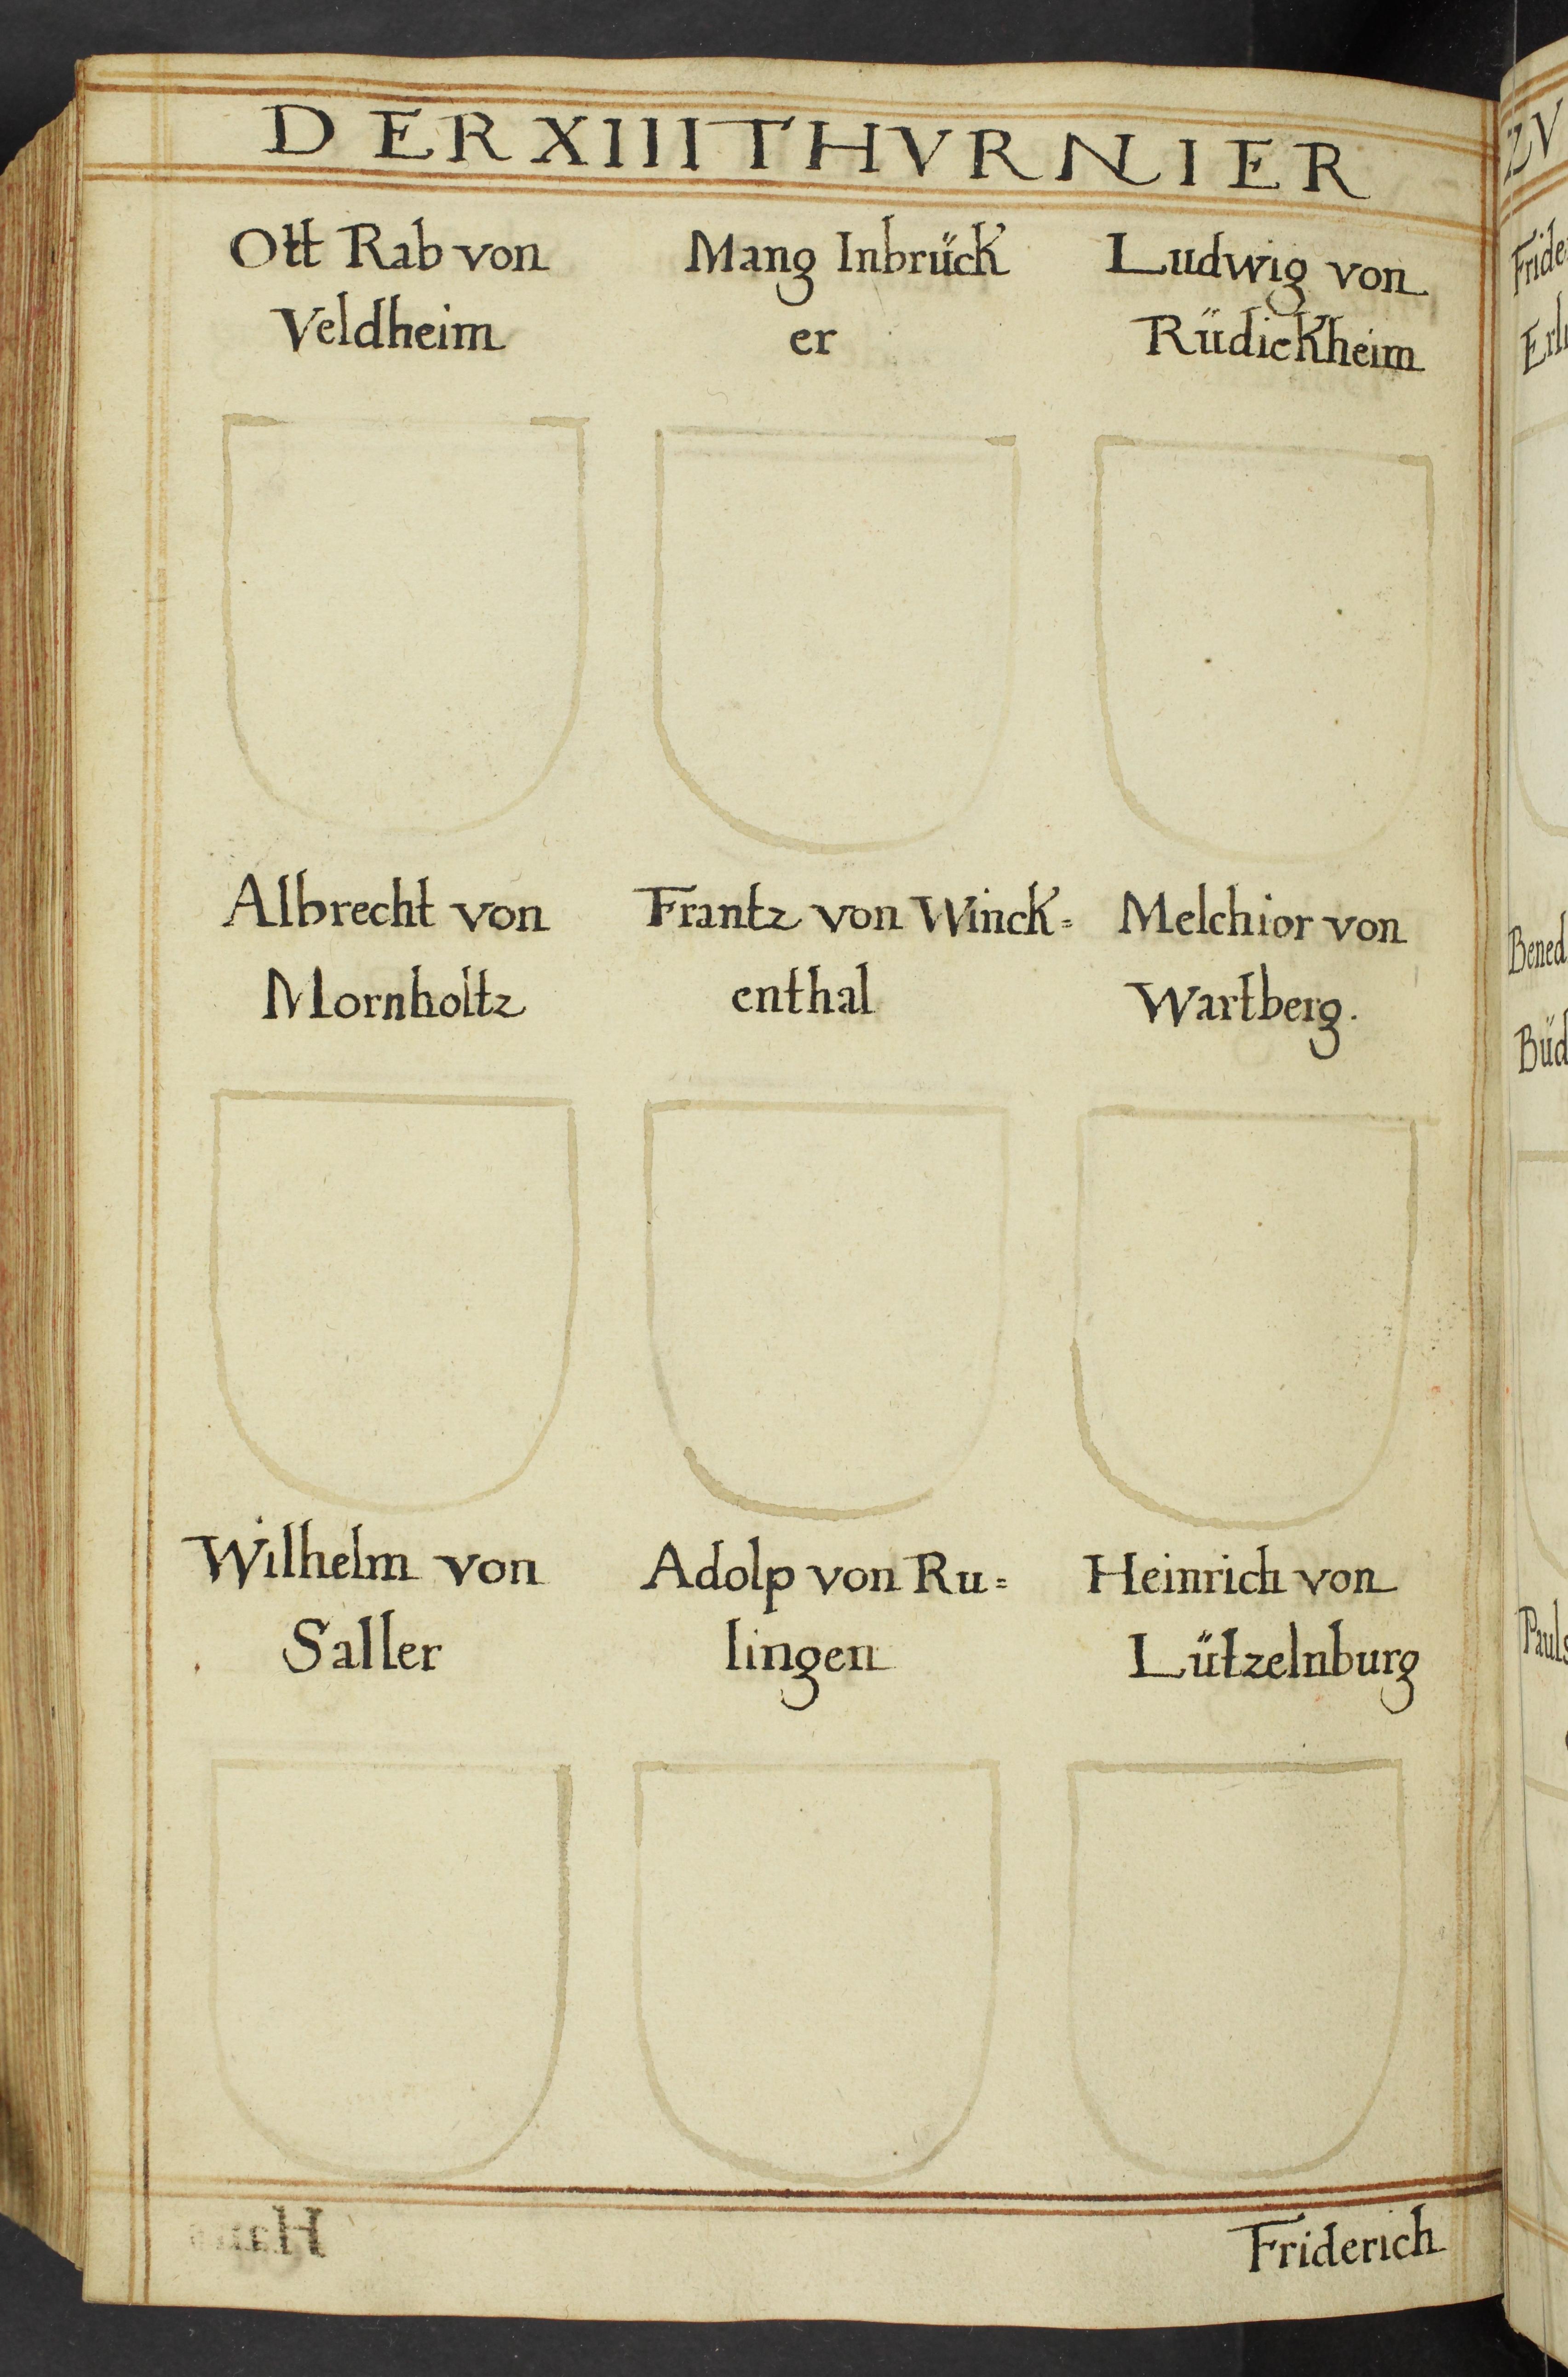 DER XIIII THVRNIER
Ott Rab von
Veldheim
Mang Inbrück
er
Ludwig von
Rüdickheim
Albrecht von
Mornholtz
Frantz von Winck=
enthal
Melchior von
Wartberg.
Wilhelm von
Saller
Adolp von Ru=
lingen
Heinrich von
Lützelnburg
Friderich
ZV
Fride
Bened
Büd
Pauls